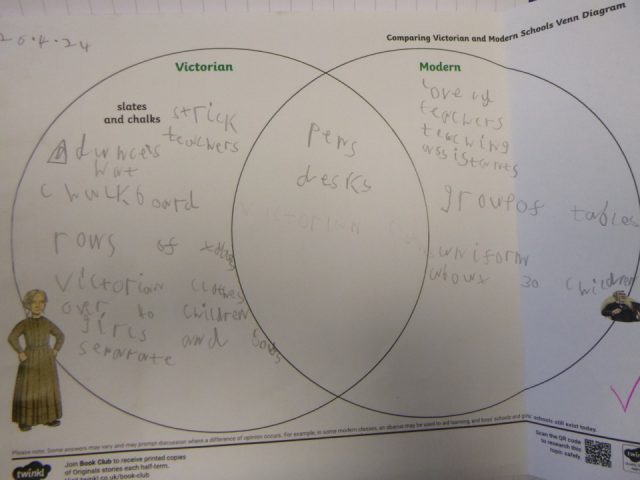 Comparing Victorian and Modern Schools Venn Diagram
Victorian
slates
and chalks
strick
teachers
duncers
hat
chalkboard
rows of
victorian clothes
over to children
girls and boys
separate
pens
desks
victorian
Modern
loverly
teachers
teaching
assistants
groupof tables
uwniform
30 children
Please note: Some answers may vary and may prompt discussion where a difference of opinion occurs. For example, in some modern classes, an abacus may be used to aid learning, and boys' schools and girls' schools still exist today.
twinkl
Join Book Club to receive printed copies
of Originals stories each half-term.
twinkl.co.uk/book-club
Scan the QR code
to research this
topic safely.